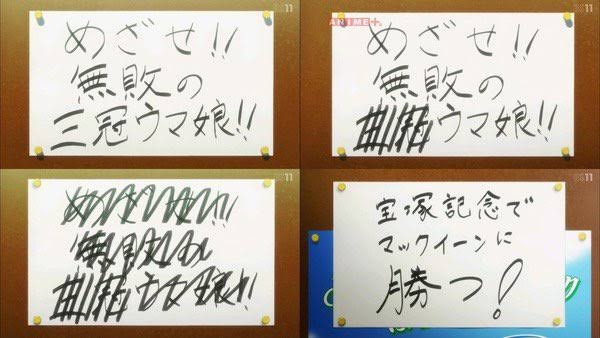 めざせ!!
無敗の
三冠ウマ娘!!
BS11
ANIME+
めざせ!!
無敗の
ウマ娘!!
BS11
めざせ!!
無敗の
ウマ娘!!
BS11
宝塚記念で
マックイーンに
勝つ!
BS11